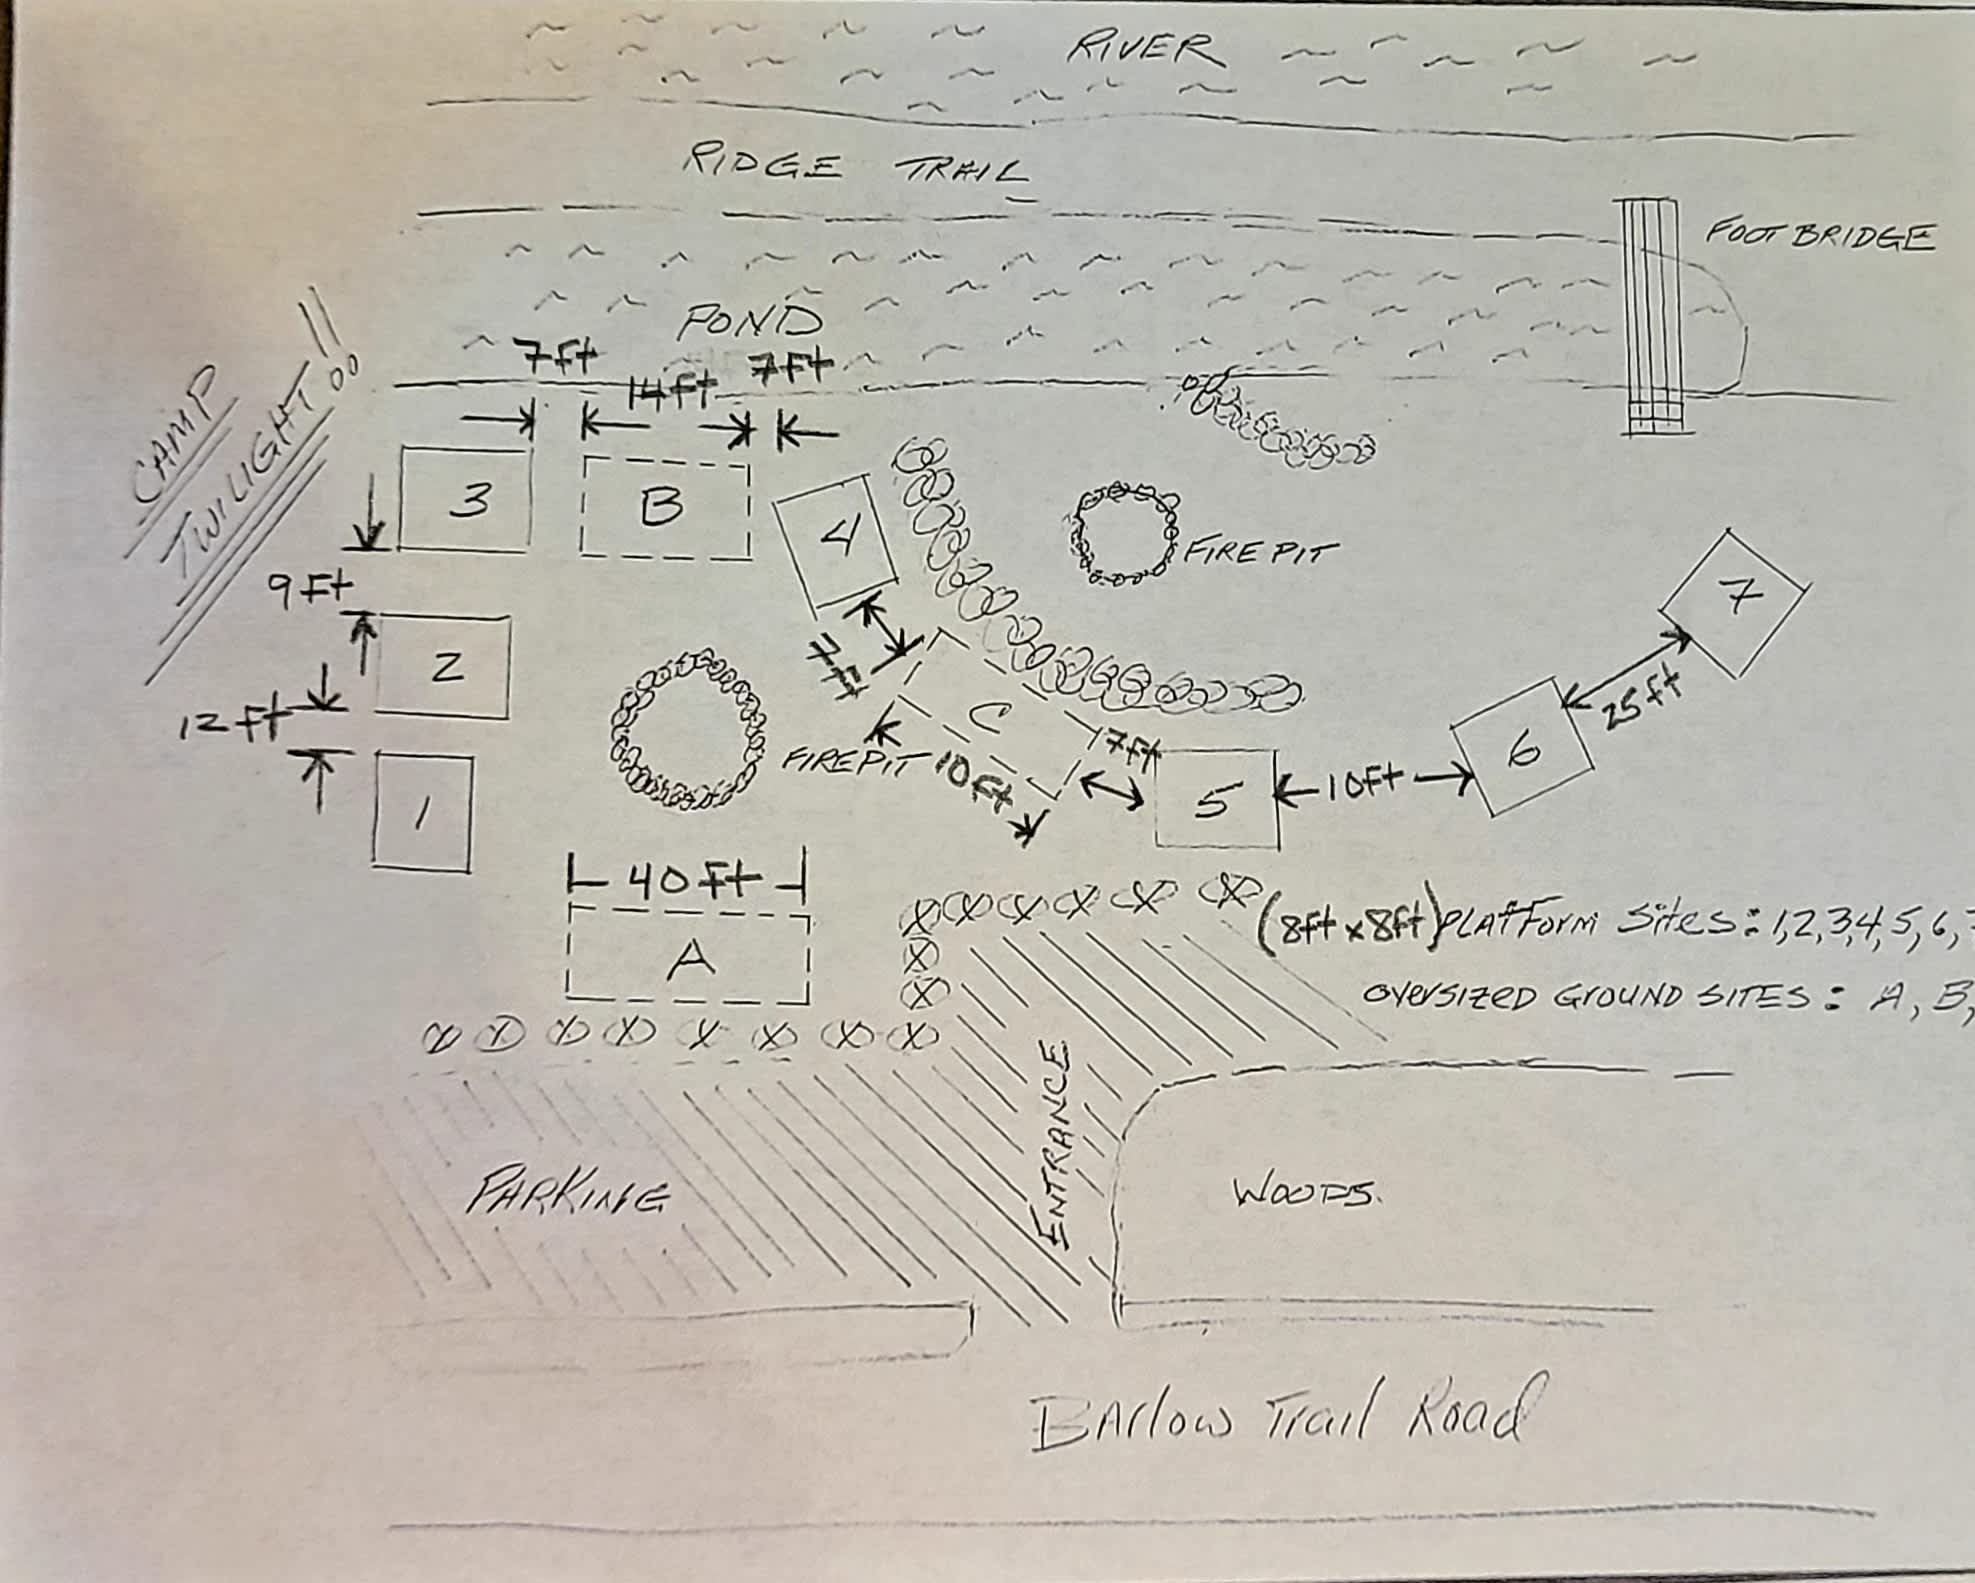 RIVER
RIDGE TRAIL
FOOT BRIDGE
CAMP
TWILIGHT!!
POND
7ft
14ft
7ft
3
B
4
FIRE PIT
7
9ft
2
7ft
C
12ft
FIRE PIT
10ft
7ft
5
10ft
6
25ft
1
40ft
A
(8ft x 8ft) PLATFORM SITES: 1,2,3,4,5,6,7
OVERSIZED GROUND SITES: A, B,
ENTRANCE
PARKING
WOODS.
BARLOW TRAIL ROAD